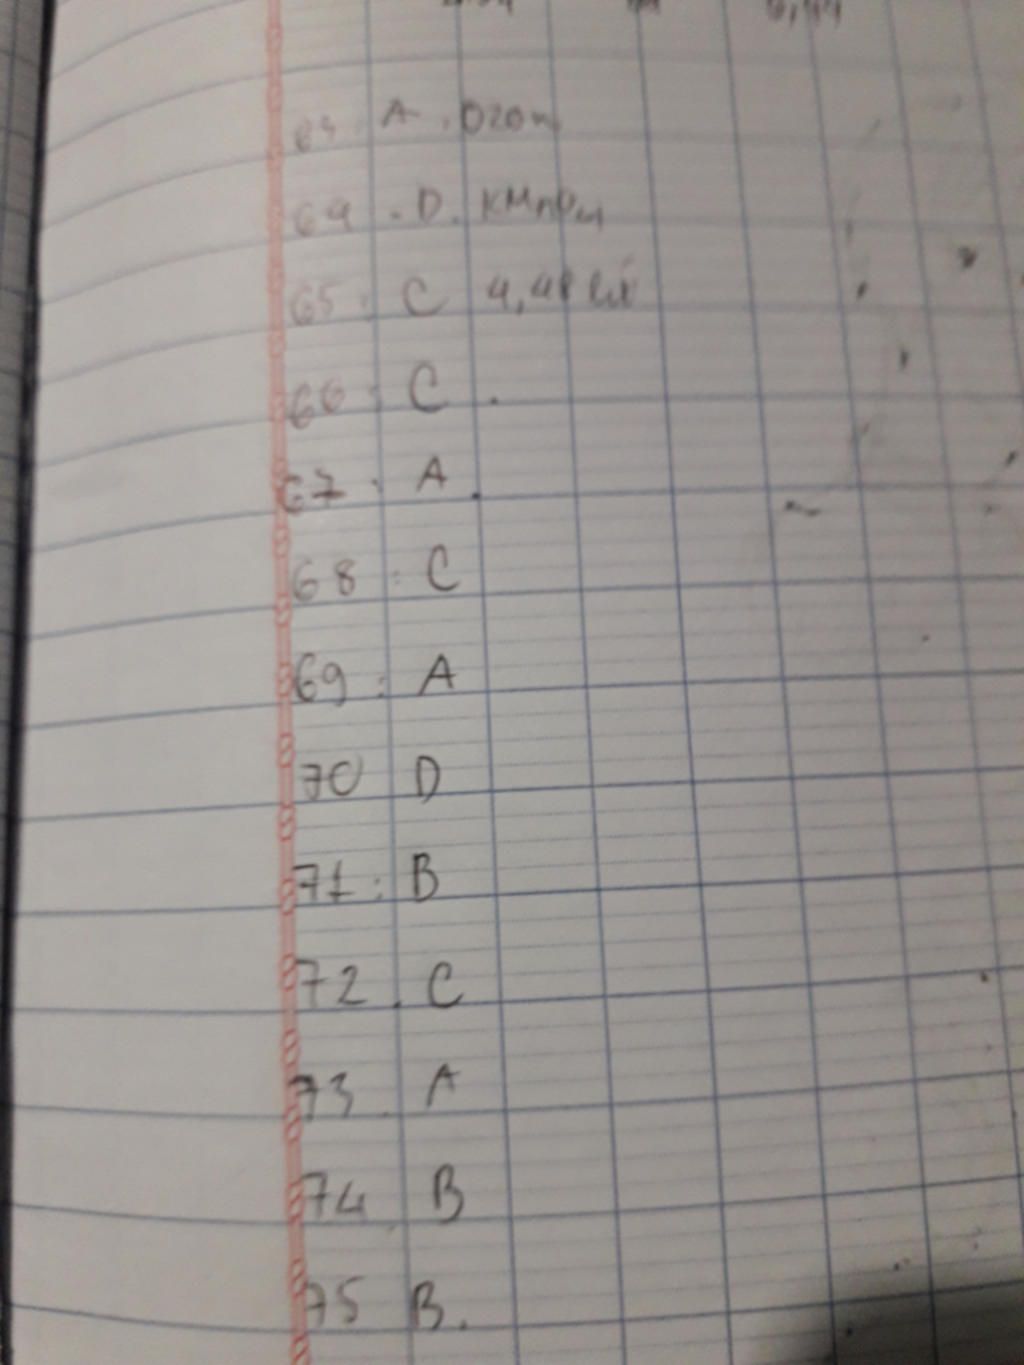 63 A. ozon
64. D. KMnO4
65: C 4,48 lít
66: C.
67. A.
68: C
69: A
70 D
71: B
72. C
73. A
74. B
75 B.